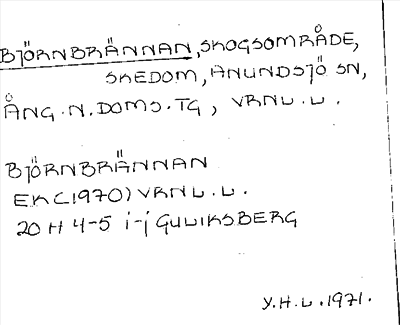 BJÖRNBRÄNNAN, SKOGSOMRÅDE,
SKEDOM, ANUNDSJÖ SN,
ÅNG.N.DOMS.TG, VRNL.L.
BJÖRNBRÄNNAN
EK(1970) VRNL.L.
20 H 4-5 i-j GULIKSBERG
Y.H.L.1971.